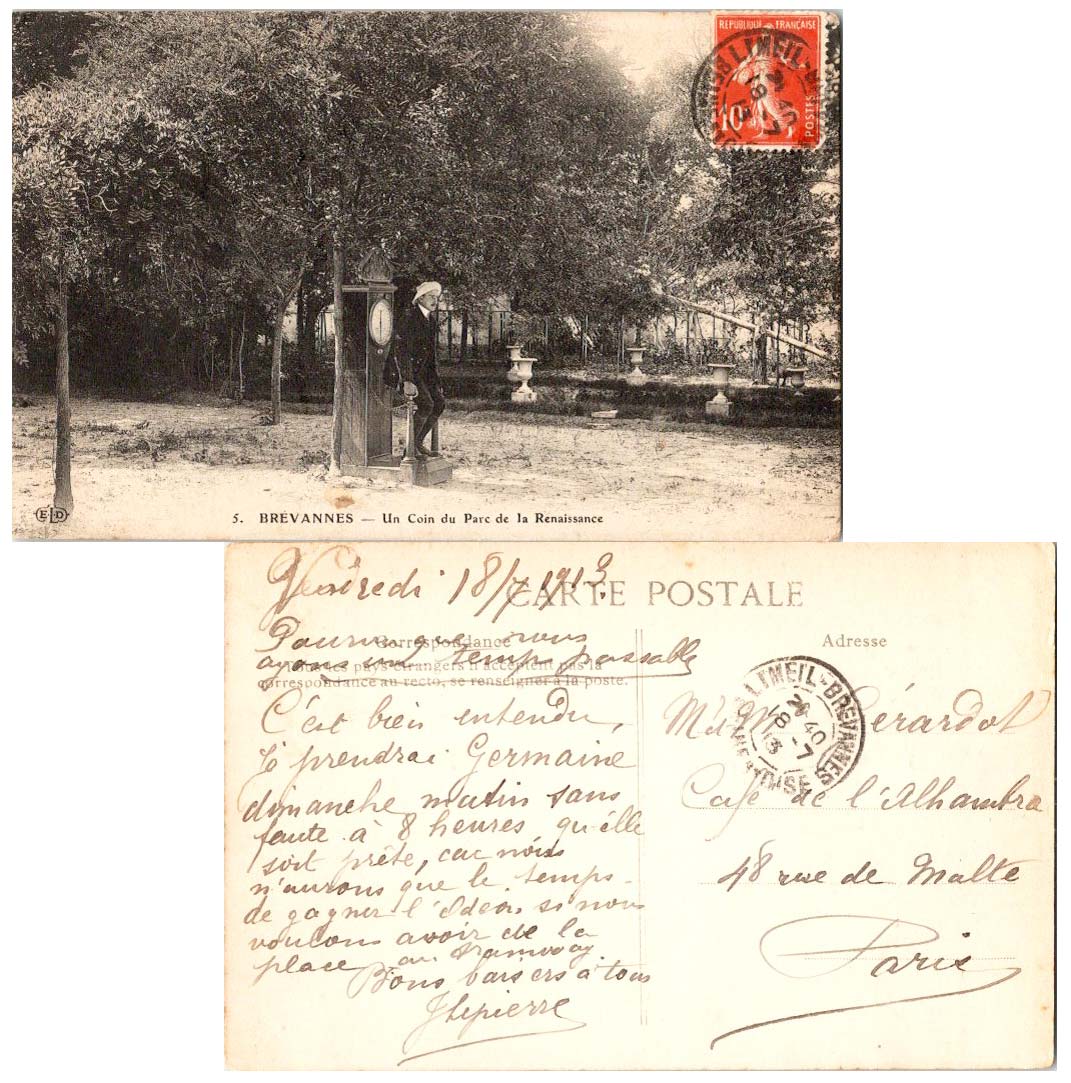 REPUBLIQUE FRANÇAISE
10
POSTES
LIMEIL-BRÉVANNES
2* 40
18 -7
13
5. BRÉVANNES — Un Coin du Parc de la Renaissance
ELD
Vendredi 18/7 1913
CARTE POSTALE
Correspondance
Pourvu que nous
ayons un temp passable
Tous les pays étrangers n'acceptent pas la
correspondance au recto, se renseigner à la poste.
C'est bien entendu,
Je prendrai Germaine
dimanche matin sans
faute à 8 heures, qu'elle
soit prête, car nous
n'aurons que le temps
de gagner l'Odéon si nous
voulons avoir de la
place au tramway
Bons baisers à tous
JLepierre
Adresse
LIMEIL-BRÉVANNES
2* 40
18 -7
13
SEINE-ET-OISE
Gérardot
Café de l'Alhambra
48 rue de Malte
Paris